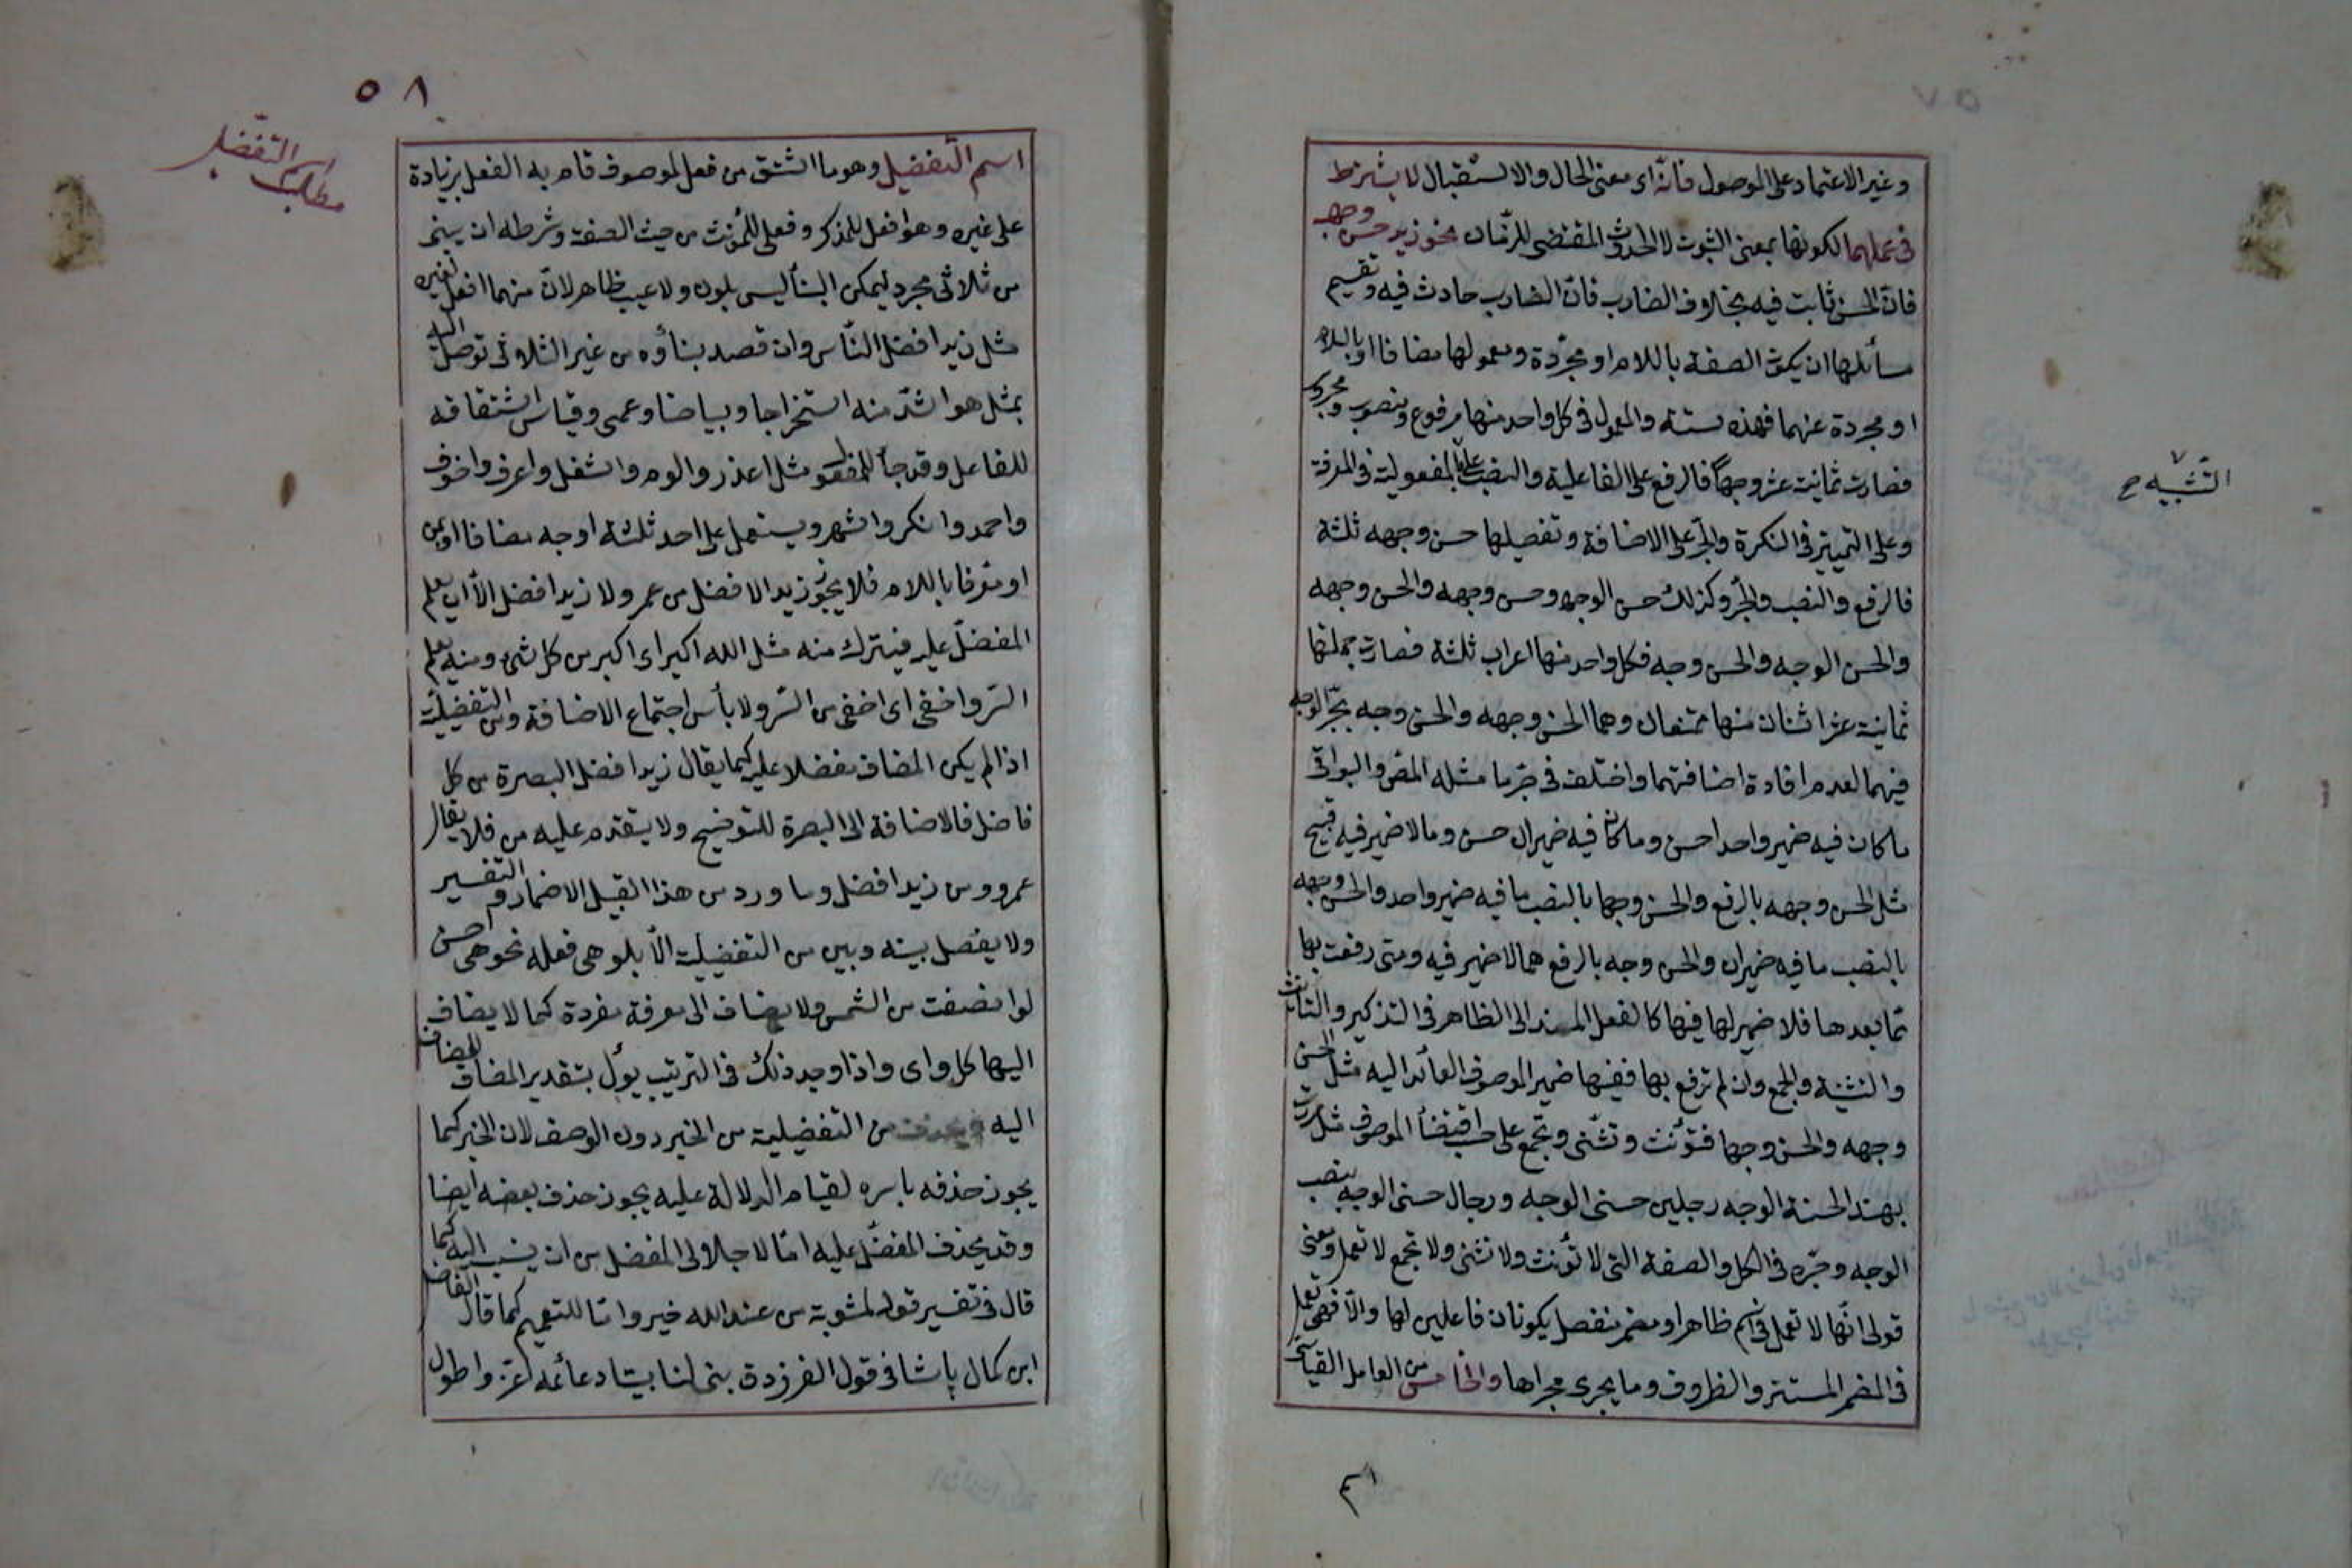 وغير الاعتماد على الموصول فانّه اى معنى الحال والاستقبال لا يشترط
فى عملهما لكونها بمعنى الثبوت لا الحدوث المقتضى للزمان نحو زيد حسن وجهه
فانّ الحسن ثابت فيه بخلاف الضارب فانّ الضارب حادث فيه وتقسيم
مسائلها ان يكون الصفة باللام او مجرّدة ومعمولها مضافا او باللام
او مجردة عنهما فهذه ستة والمعمول فى كل واحد منها مرفوع ومنصوب ومجرور
فصارت ثمانية عشر وجهاً فالرفع على الفاعلية والنصب على بالمفعولية فى المعرفة
التشبيه صح
وعلى التمييز فى النكرة والجرّ على الاضافة وتفصيلها حسن وجهه ثلثة
فالرفع والنصب والجرّ وكذلك حسن الوجه وحسن وجهه والحسن وجهه
والحسن الوجه والحسن وجه فكل واحد منها اعراب ثلثة فصارت جملتها
ثمانية عشر اثنان منها ممتنعان وهما الحسن وجهه والحسن وجه بجرّ الوجه
فيهما لعدم افادة اضافتهما واختلف فى جرّ ما مثله المص والبواقى
ما كان فيه ضمير واحد احسن وما كان فيه ضميران حسن وما لا ضمير فيه قبيح
مثل الحسن وجهه بالرفع والحسن وجها بالنصب ما فيه ضمير واحد والحسن وجهه
بالنصب ما فيه ضميران والحسن وجه بالرفع هما لا ضمير فيه ومتى رفعت بها
مّا بعدها فلا ضمير لها فيها كالفعل المسند الى الظاهر فى التذكير والتأنيث
والتثنية والجمع وان لم ترفع بها ففيها ضمير الموصوف العائد اليه مثل الحسن
وجهه والحسن وجها فتؤنث وتثنى وتجمع على حسب اقتضأ الموصوف مثل مررت
بهند الحسنة الوجه رجلين حسنى الوجه ورجال حسنى الوجه بنصب
الوجه وجرّه فى الكل والصفة التى لا تؤنث ولا تثنى ولا تجمع لا تعمل ومعنى
قولى انّها لا تعمل فى اسم ظاهر او مضمر منفصل يكونان فاعلين لها والّا فهى تعمل
فى المضمر المستتر والظروف وما يجرى مجراها والخامس من العامل القياسى
٥٨
مطلب اسم التفضيل
اسم التفضيل وهو ما اشتق من فعل لموصوف قام به الفعل بزيادة
على غيره وهو افعل للمذكر وفعلى للمؤنث من حيث الصفة وشرطه ان يبنى
من ثلاثى مجرد ليمكن البنأ ليس بلون ولا عيب ظاهر لانّ منهما افعل لغيره
مثل زيد افضل النّاس وان قصد بنأؤه من غير الثلاثى توصل اليه
بمثل هو اشدّ منه استخراجا وبياضا وعمى وقياس اشتقاقه
للفاعل وقد جأ للمفعول مثل اعذر والوم واشغل واعرف واخوف
واحمد وانكر واشهر ويستعمل على احد ثلثة اوجه مضافا او بمن
او معرفا باللام فلا يجوز زيد الافضل من عمر ولا زيد افضل الّا ان يعلم
المفضلّ عليه فيترك منه مثل الله اكبر اى اكبر من كل شئ ومنه يعلم
السّر واخفى اى اخفى من السّر ولا بأس اجتماع الاضافة ومن التفضيلية
اذا لم يكن المضاف مفضلا عليه كما يقال زيد افضل البصرة من كل
فاضل فالاضافة الى البصرة للتوضيح ولا يتقدم عليه من فلا يقال
عمرو ومن زيد افضل وما ورد من هذا القبيل الاضمار والتفسير
ولا يفصل بينه وبين من التفضيلية الّا بلو هى فعله نحو هى احسن
لو انصفت من الشمس ولا يضاف الى معرفة مفردة كما لا يضاف
اليها كل واى واذا وجد ذلك فى الترتيب يؤل بتقدير المضاف للمضاف
اليه ويحذف من التفضيلية من الخبر دون الوصف لان الخبر كما
يجوز حذفه باسره لقيام الدلالة عليه يجوز حذف بعضه ايضا
وقد يحذف المفضّل عليه امّا لاجلال المفضل من ان ينسب اليه كما
قال فى تفسير قوله لمثوبة من عند الله خير وامّا للتعميم كما قال الفاضل
ابن كمال پاشا فى قول الفرزدق بنى لنا بيتا دعائمه اعز واطول